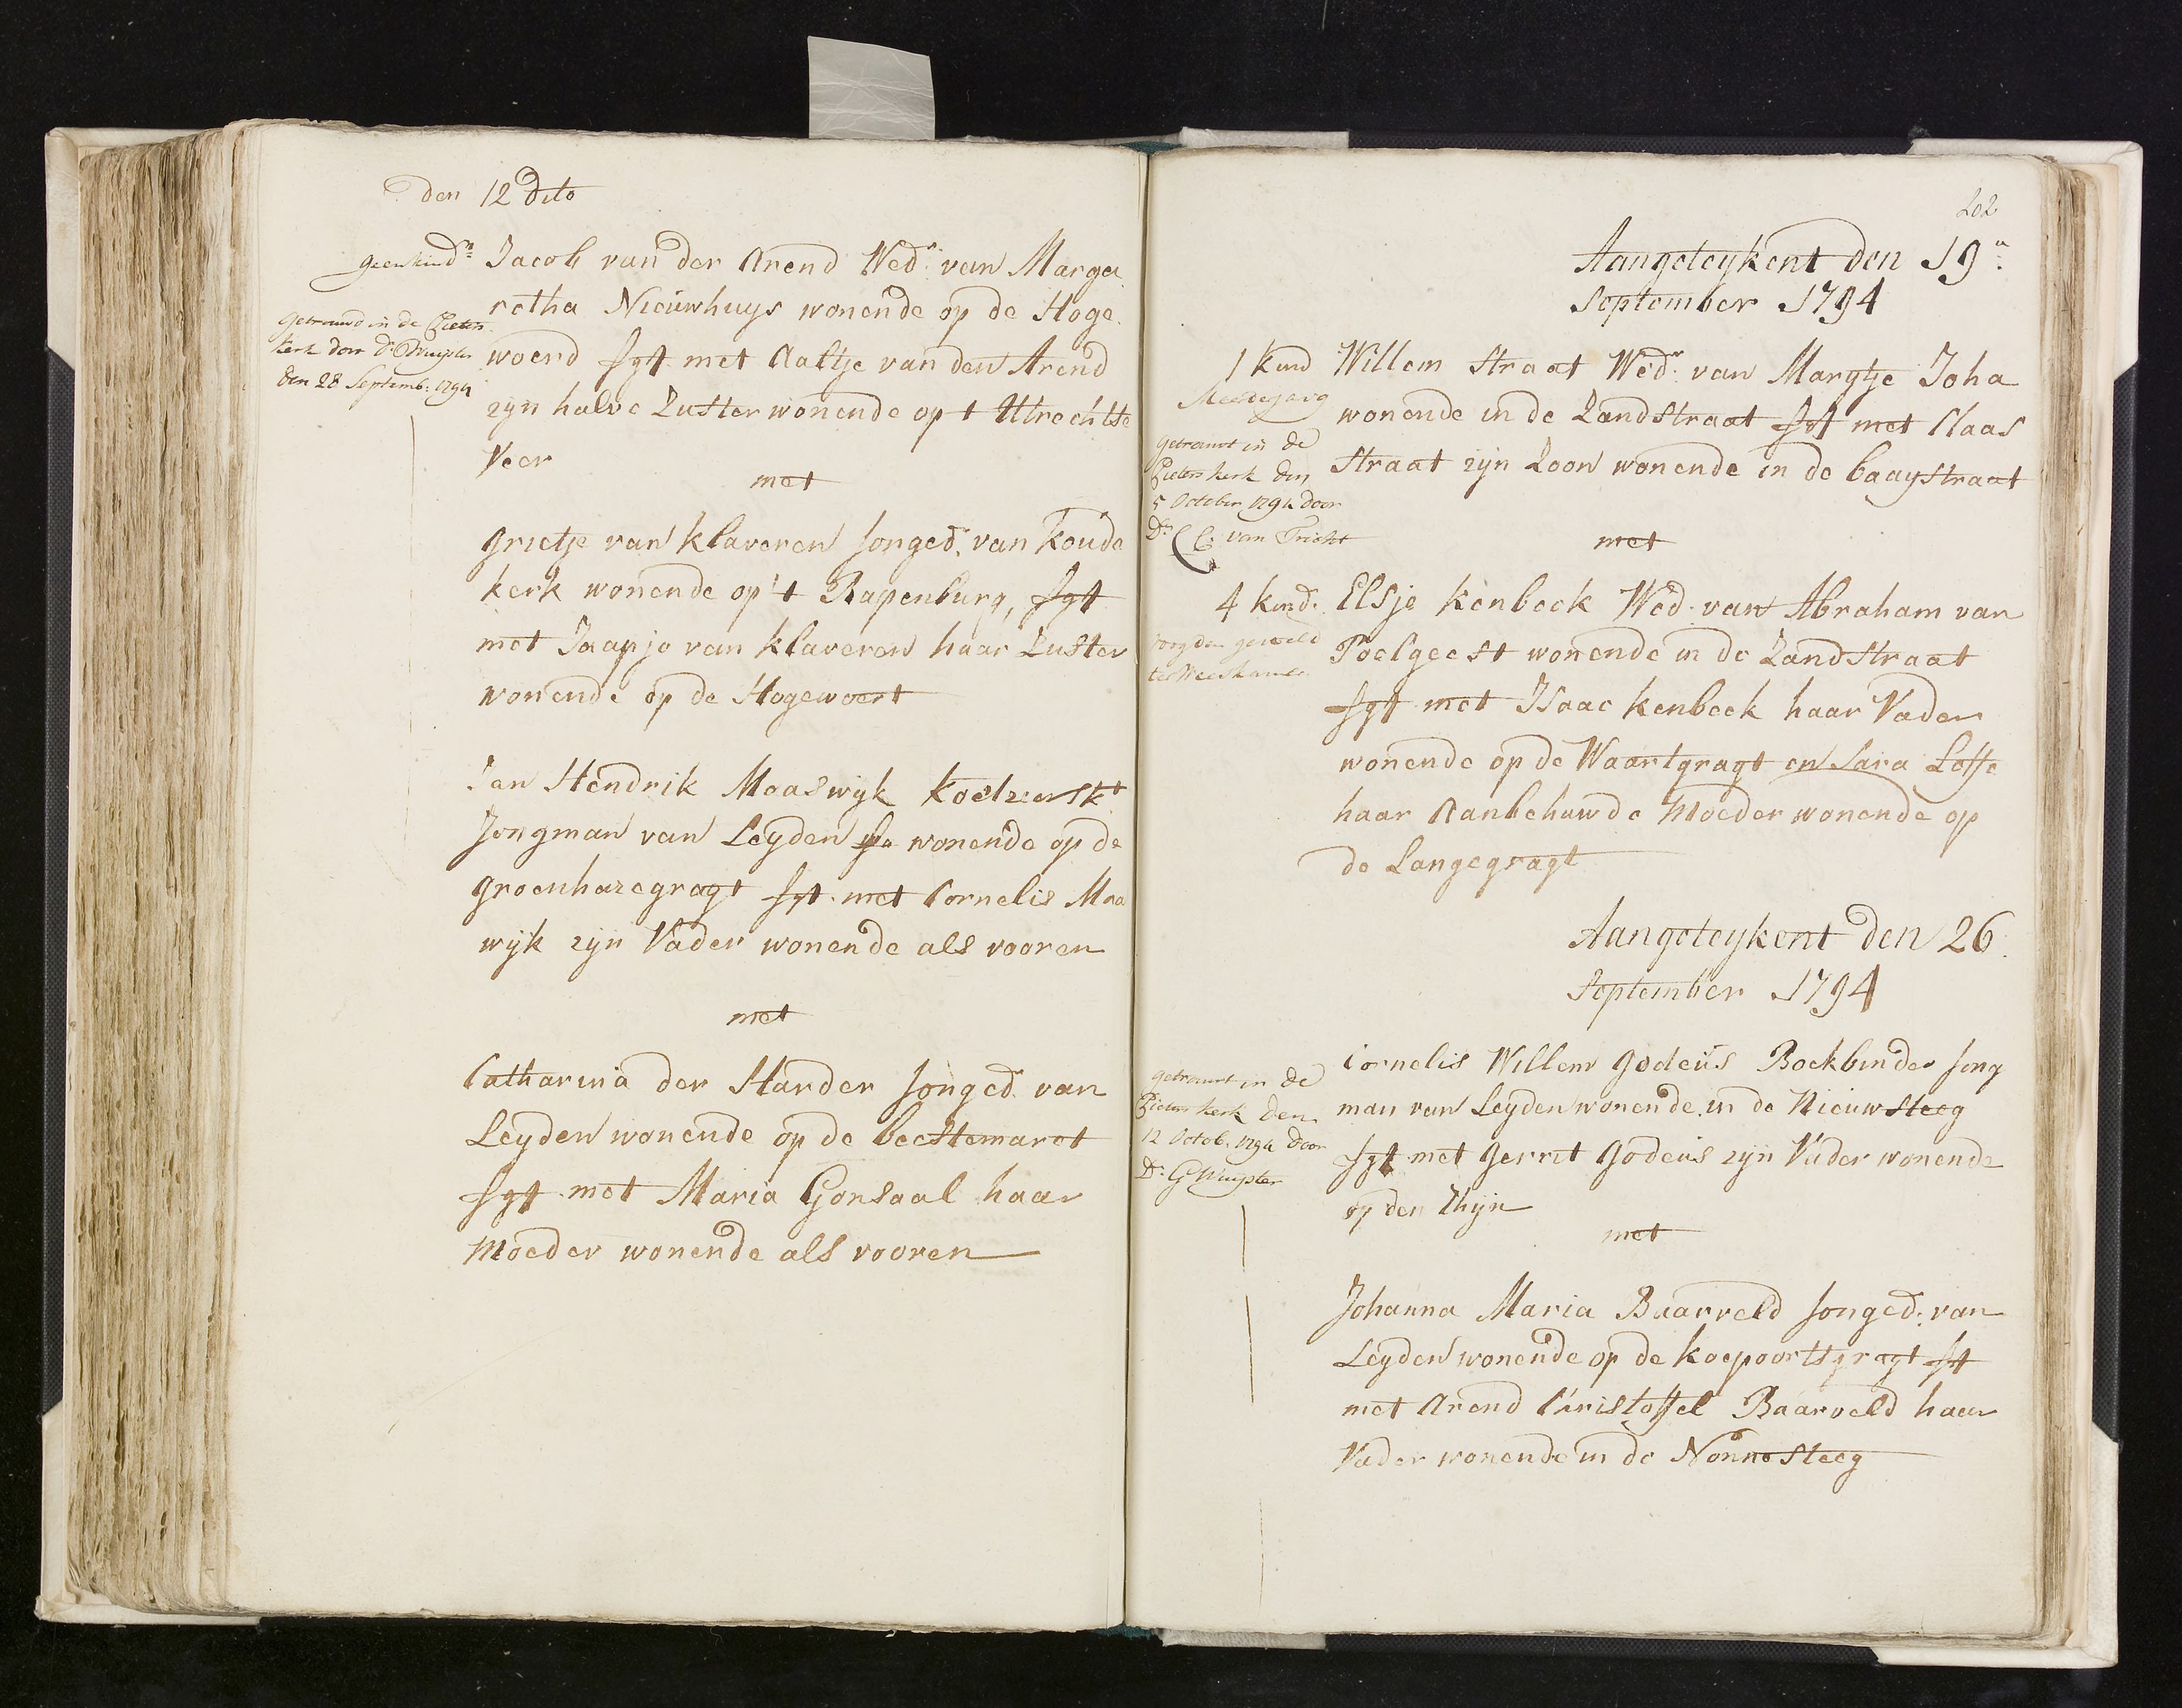 den 12 dito
geen kind:n
Jacob van der Arend Wed:r van Marga
retha Nieuwhuys wonende op de Hoge
woerd Sgt met Aaltje van den Arend
zyn halve Zuster wonende op t Utrechtse
Veer
getrouwd in de Pieters
kerk door Ds
den 28 Septemb: 1794
met
Grietje van Klaveren Jonged: van Koude
kerk wonende op 't Rapenburg, Sgt
met Jaapje van Klaveren haar Zuster
wonende op de Hogewoert
Jan Hendrik Maaswyk Koetzierskt
Jongman van Leyden wonende op de
Groenhazegragt Sgt met Cornelis Maa
wyk zyn Vader wonende als vooren
met
Catharina der Harder Jonged: van
Leyden wonende op de beestemarct
Sgt met Maria Gonsaal haar
Moeder wonende als vooren
202
Aangeteykent den 19:n
September 1794
1 kind
Meerderjarig
Willem Straat Wed:r van Margtje Joha
wonende in de Zandstraat Sgt met Claas
Straat zyn Zoon wonende in de baaystraat
getrouwt in de
Pieters kerk den
5 October 1794 door
Ds: C: van Tricht
met
4 kind:
ter Weeskamer
Elsje Kenbeek Wed: van Abraham van
Poelgeest wonende in de Zandstraat
Sgt met Isaac Kenbeek haar Vader
wonende op de Waartgragt en Sara Loffe
haar Aanbehuwde Moeder wonende op
de Langegragt
Aangeteykent den 26
September 1794
Cornelis Willem Godeüs Boekbinder Jong
man van Leyden wonende in de Nieuwsteeg
Sgt met Gerrit Godeüs zyn Vader wonende
op den Rhyn
getrouwt in de
Pieters kerk den
12 Octob: 1794 door
Ds: G
met
Johanna Maria Baarveld Jonged: van
Leyden wonende op de Koepoortsgragt Sgt
met Arend Christoffel Baarveld haar
Vader wonende in de Nonnesteeg